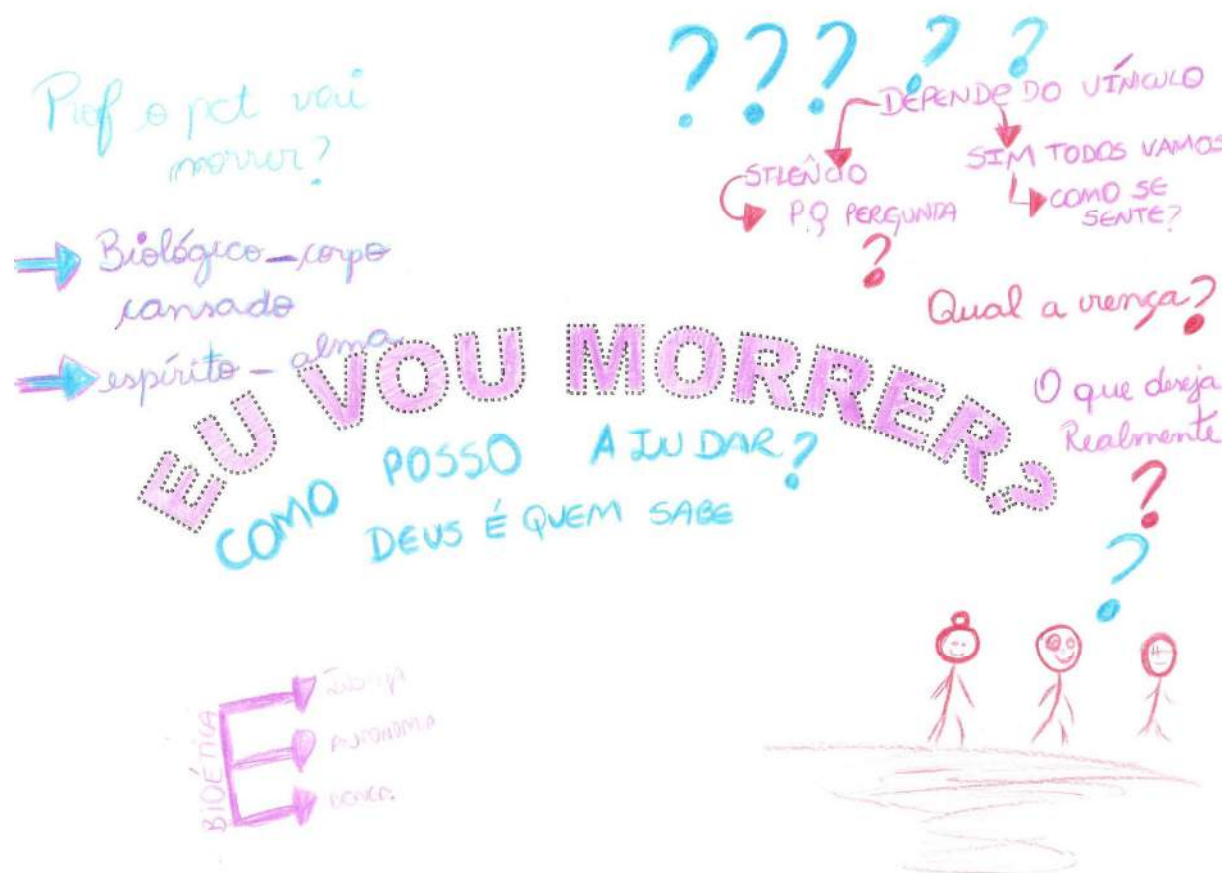 Prof o pct vai
morrer?
Biológico - corpo
cansado
espírito - alma
? ? ? ? ?
DEPENDE DO VÍNCULO
SILÊNCIO
P.Q PERGUNTA
?
SIM TODOS VAMOS
COMO SE
SENTE?
Qual a crença?
O que deseja
Realmente
?
?
EU VOU MORRER?
COMO POSSO AJUDAR?
DEUS É QUEM SABE
BIOÉTICA
JUSTIÇA
AUTONOMIA